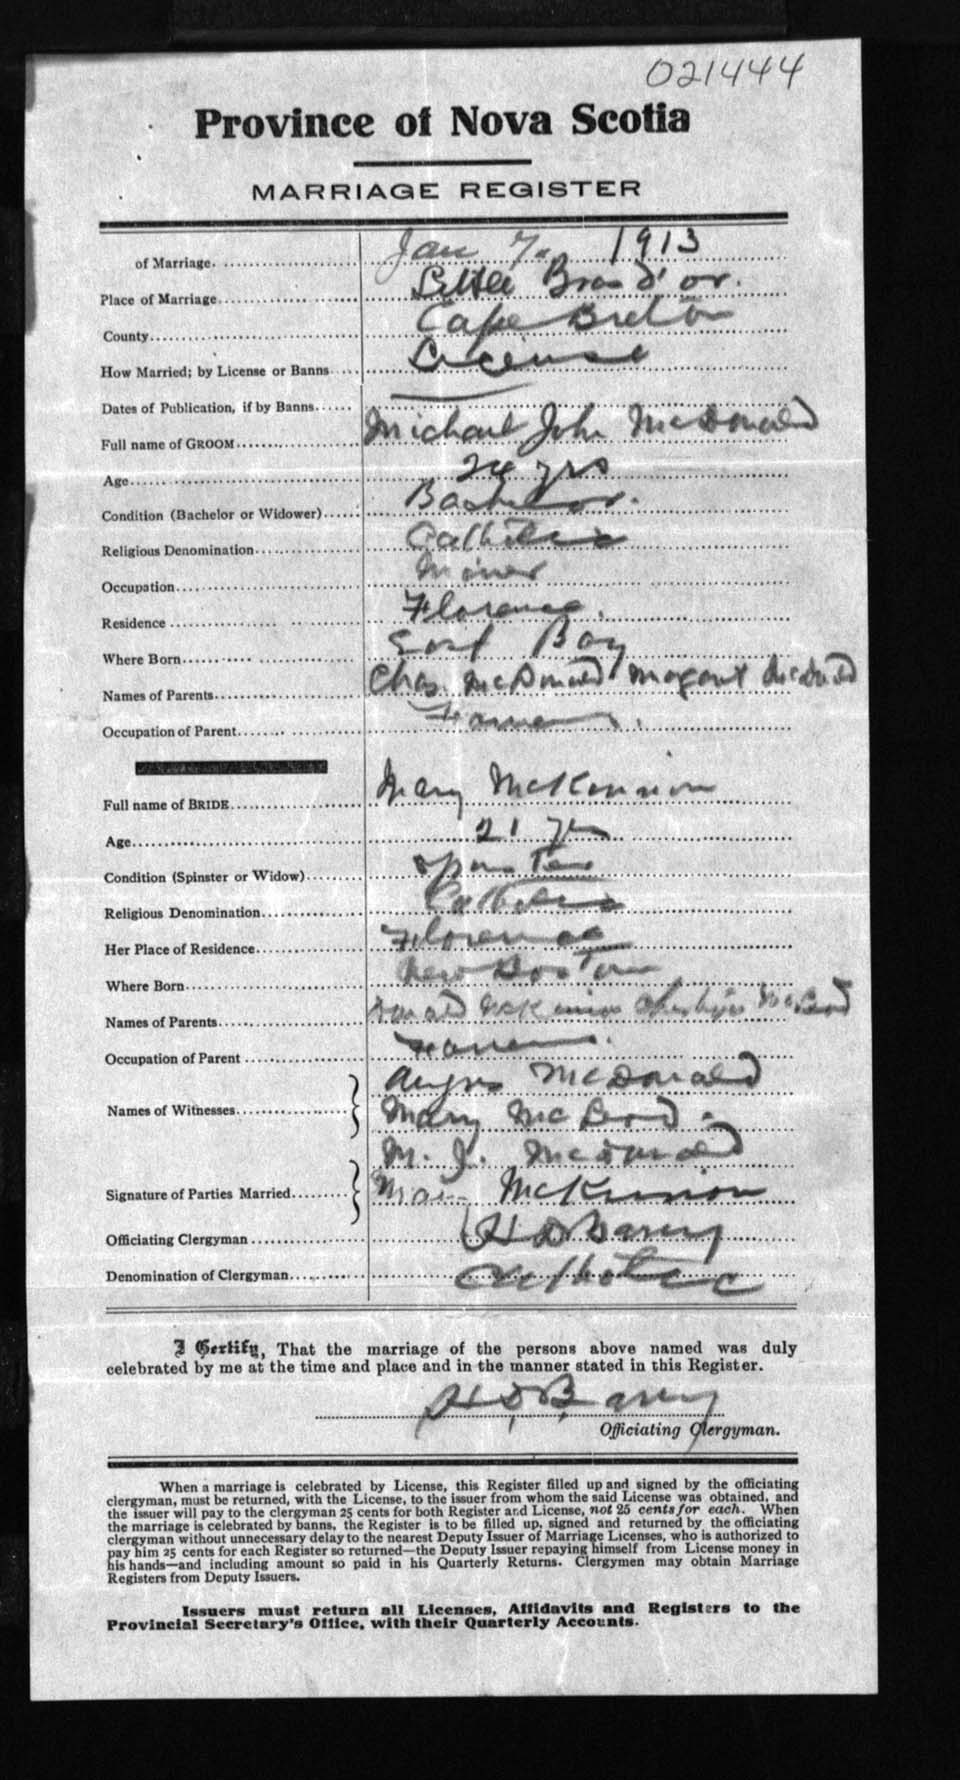 021444
Province of Nova Scotia
MARRIAGE REGISTER
of Marriage Jan 7. 1913
Place of Marriage Little Bras d'or.
County Cape Breton
How Married; by License or Banns License
Dates of Publication, if by Banns
Full name of GROOM Michael John McDonald
Age 24 yrs
Condition (Bachelor or Widower) Bachelor.
Religious Denomination Catholic
Occupation Miner
Residence Florence.
Where Born East Bay
Names of Parents Chas. McDonald Margaret McDonald
Occupation of Parent Farmer
Full name of BRIDE Mary McKinnon
Age 21 yrs
Condition (Spinster or Widow) Spinster
Religious Denomination Catholic
Her Place of Residence Florence
Where Born New Boston
Names of Parents Donald McKinnon McLeod
Occupation of Parent Farmer.
Names of Witnesses Angus McDonald
Mary McLeod
Signature of Parties Married M. J. McDonald
Mary McKinnon
Officiating Clergyman H D Barry
Denomination of Clergyman Catholic
I Certify, That the marriage of the persons above named was duly
celebrated by me at the time and place and in the manner stated in this Register.
H. D. Barry
Officiating Clergyman.
When a marriage is celebrated by License, this Register filled up and signed by the officiating
clergyman, must be returned, with the License, to the issuer from whom the said License was obtained, and
the issuer will pay to the clergyman 25 cents for both Register and License, not 25 cents for each. When
the marriage is celebrated by banns, the Register is to be filled up, signed and returned by the officiating
clergyman without unnecessary delay to the nearest Deputy Issuer of Marriage Licenses, who is authorized to
pay him 25 cents for each Register so returned—the Deputy Issuer repaying himself from License money in
his hands—and including amount so paid in his Quarterly Returns. Clergymen may obtain Marriage
Registers from Deputy Issuers.
Issuers must return all Licenses, Affidavits and Registers to the
Provincial Secretary's Office, with their Quarterly Accounts.